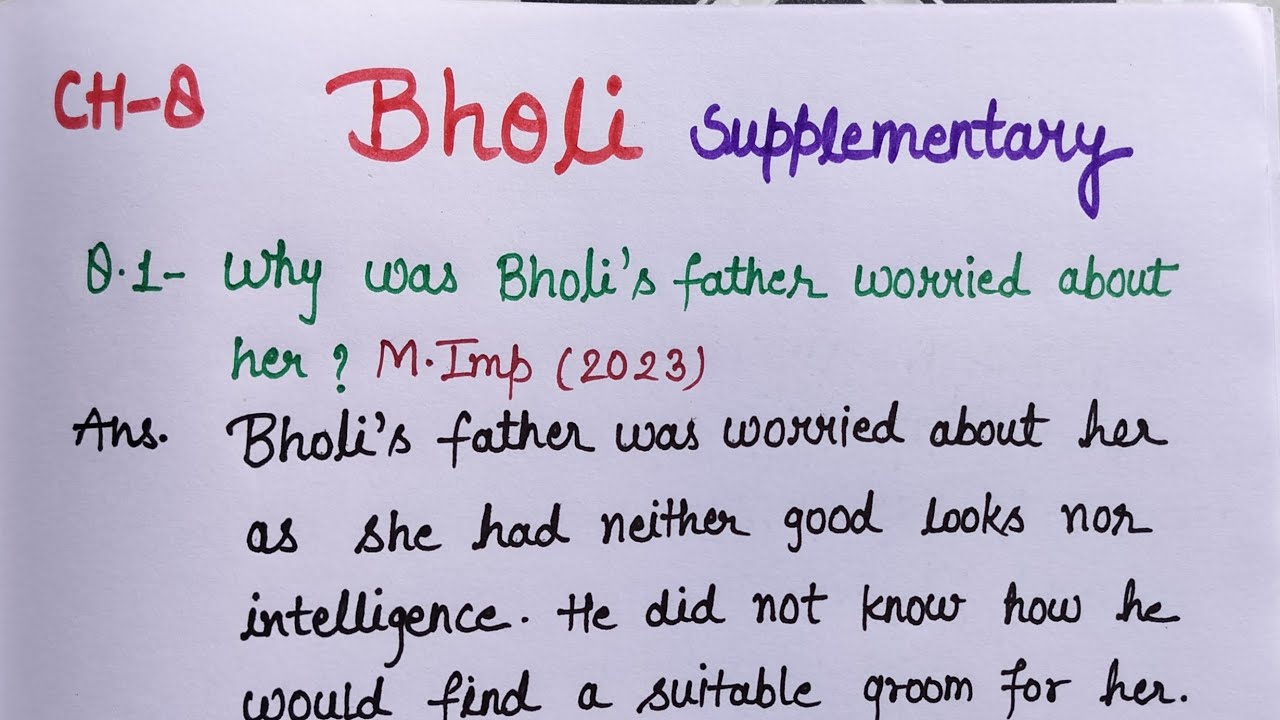 CH-8 Bholi Supplementary
Q.1- Why was Bholi's father worried about
her? M.Imp (2023)
Ans. Bholi's father was worried about her
as she had neither good looks nor
intelligence. He did not know how he
would find a suitable groom for her.